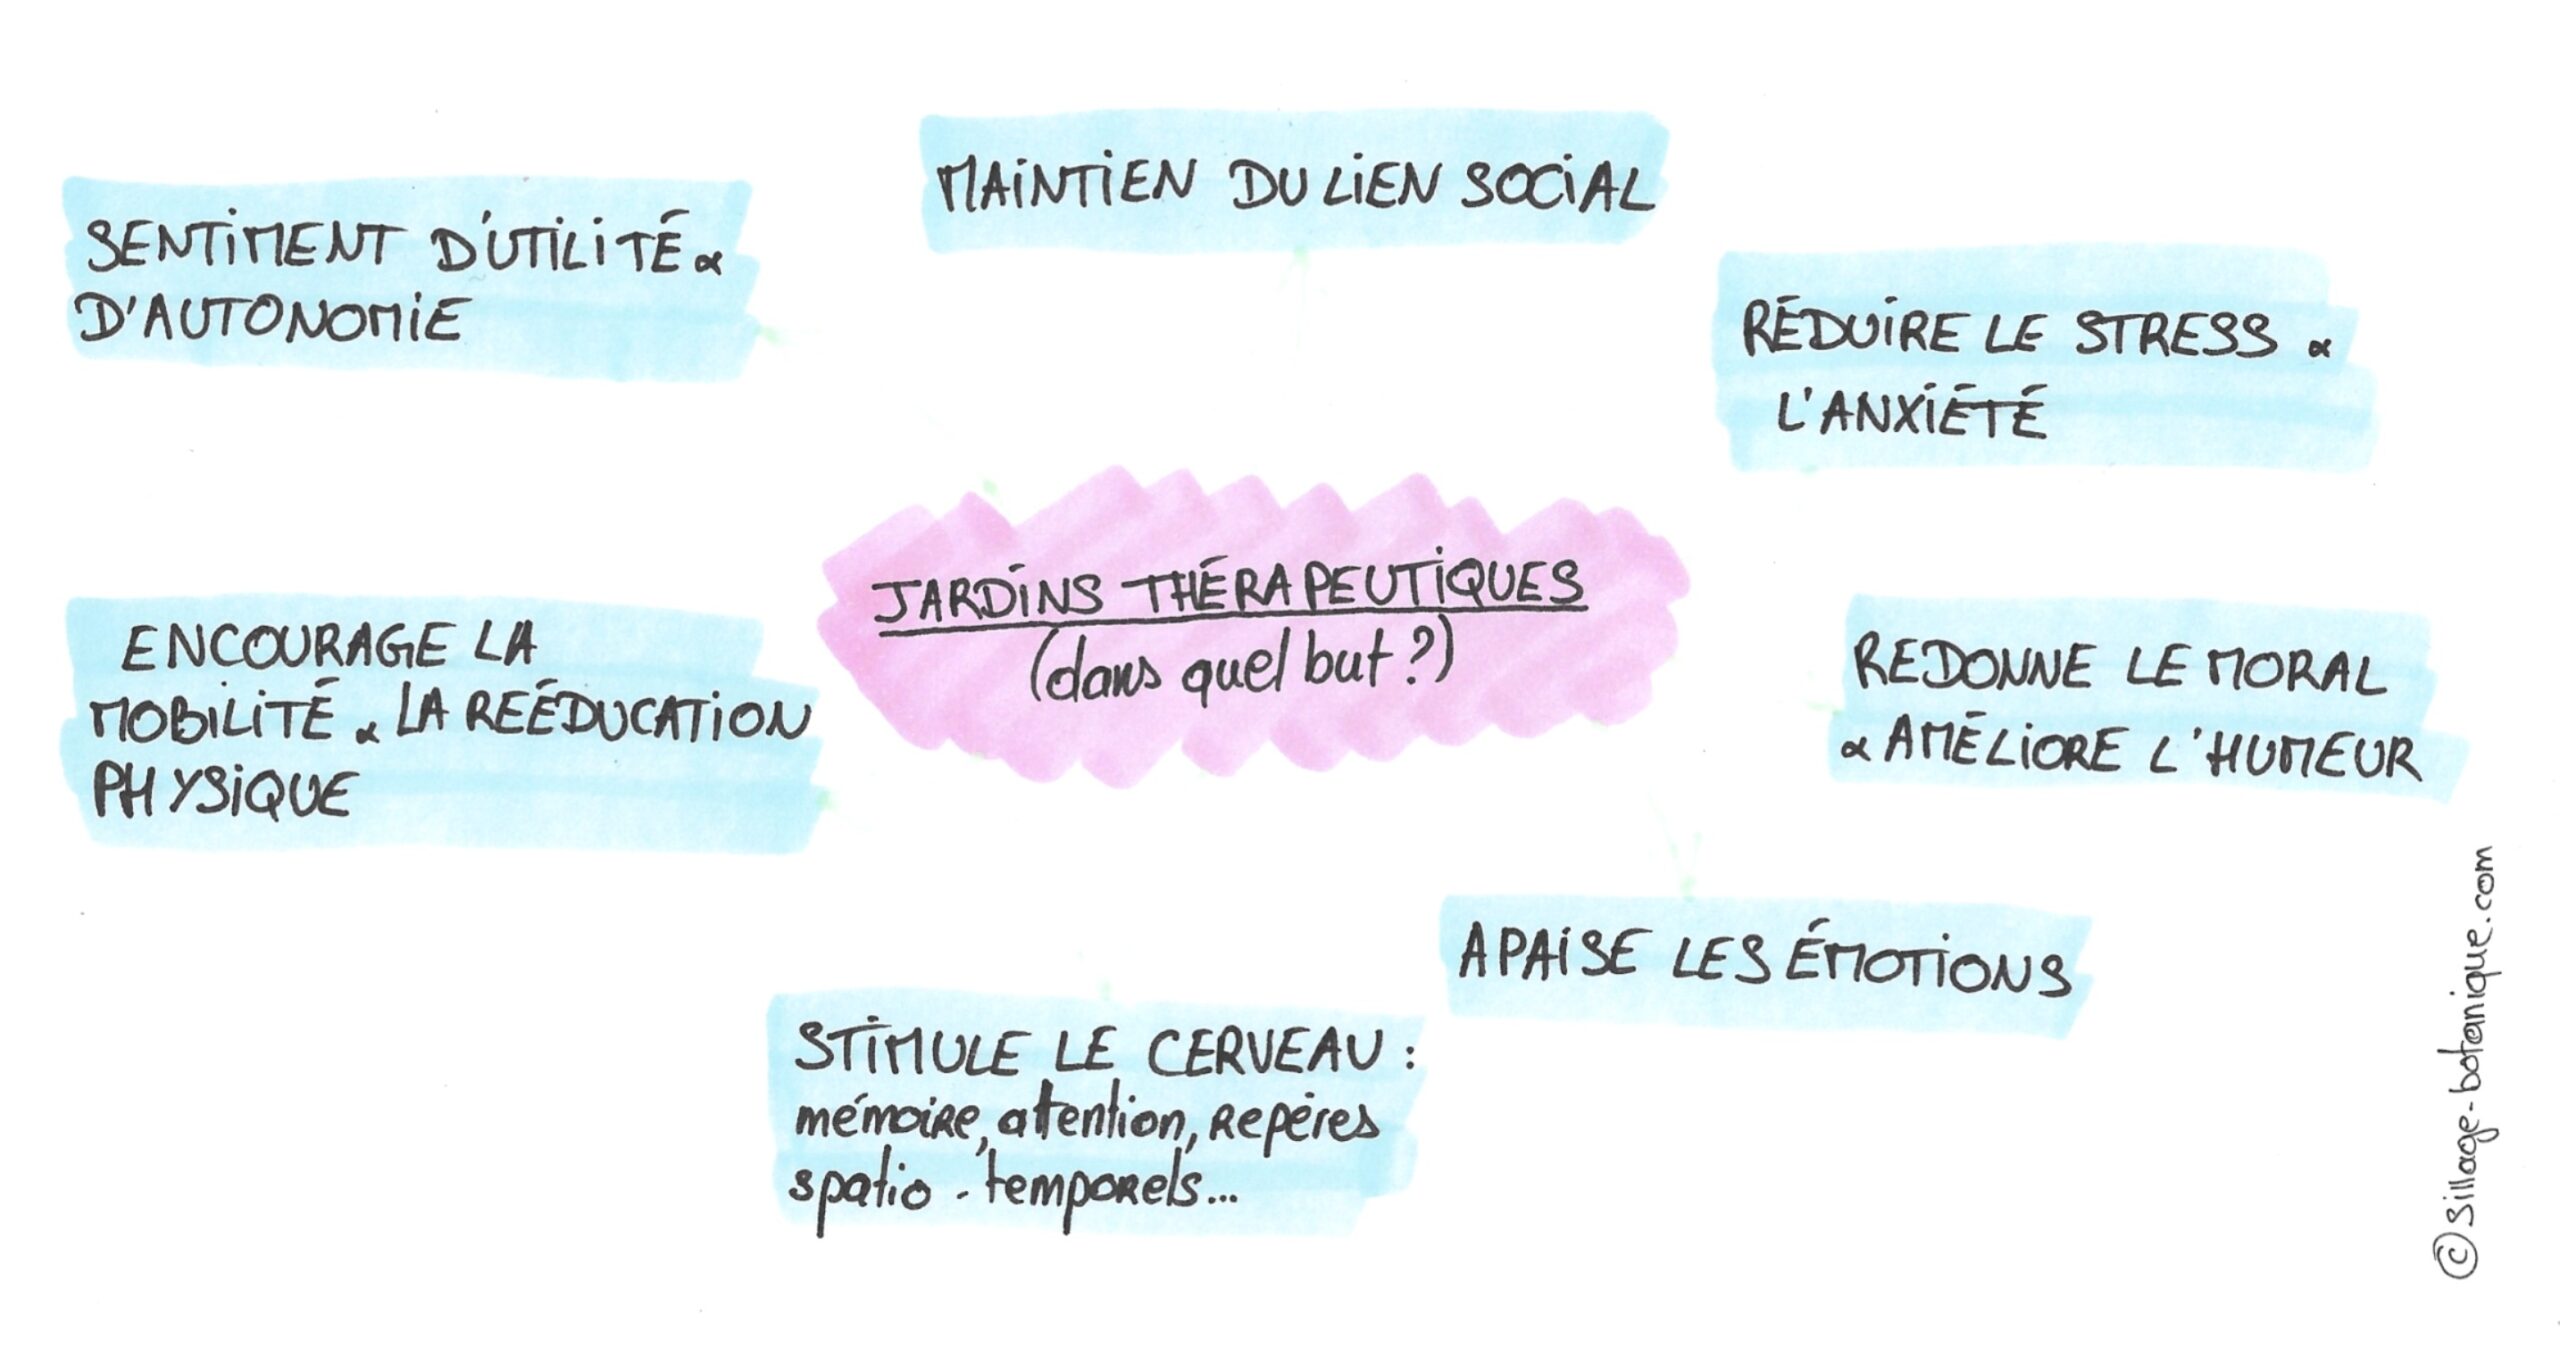 MAINTIEN DU LIEN SOCIAL
SENTIMENT D'UTILITÉ &
D'AUTONOMIE
RÉDUIRE LE STRESS &
L'ANXIÉTÉ
JARDINS THÉRAPEUTIQUES
(dans quel but ?)
ENCOURAGE LA
MOBILITÉ & LA REÉDUCATION
PHYSIQUE
REDONNE LE MORAL
& AMÉLIORE L'HUMEUR
APAISE LES ÉMOTIONS
STIMULE LE CERVEAU :
mémoire, attention, repères
spatio-temporels...
©sillage-botanique.com